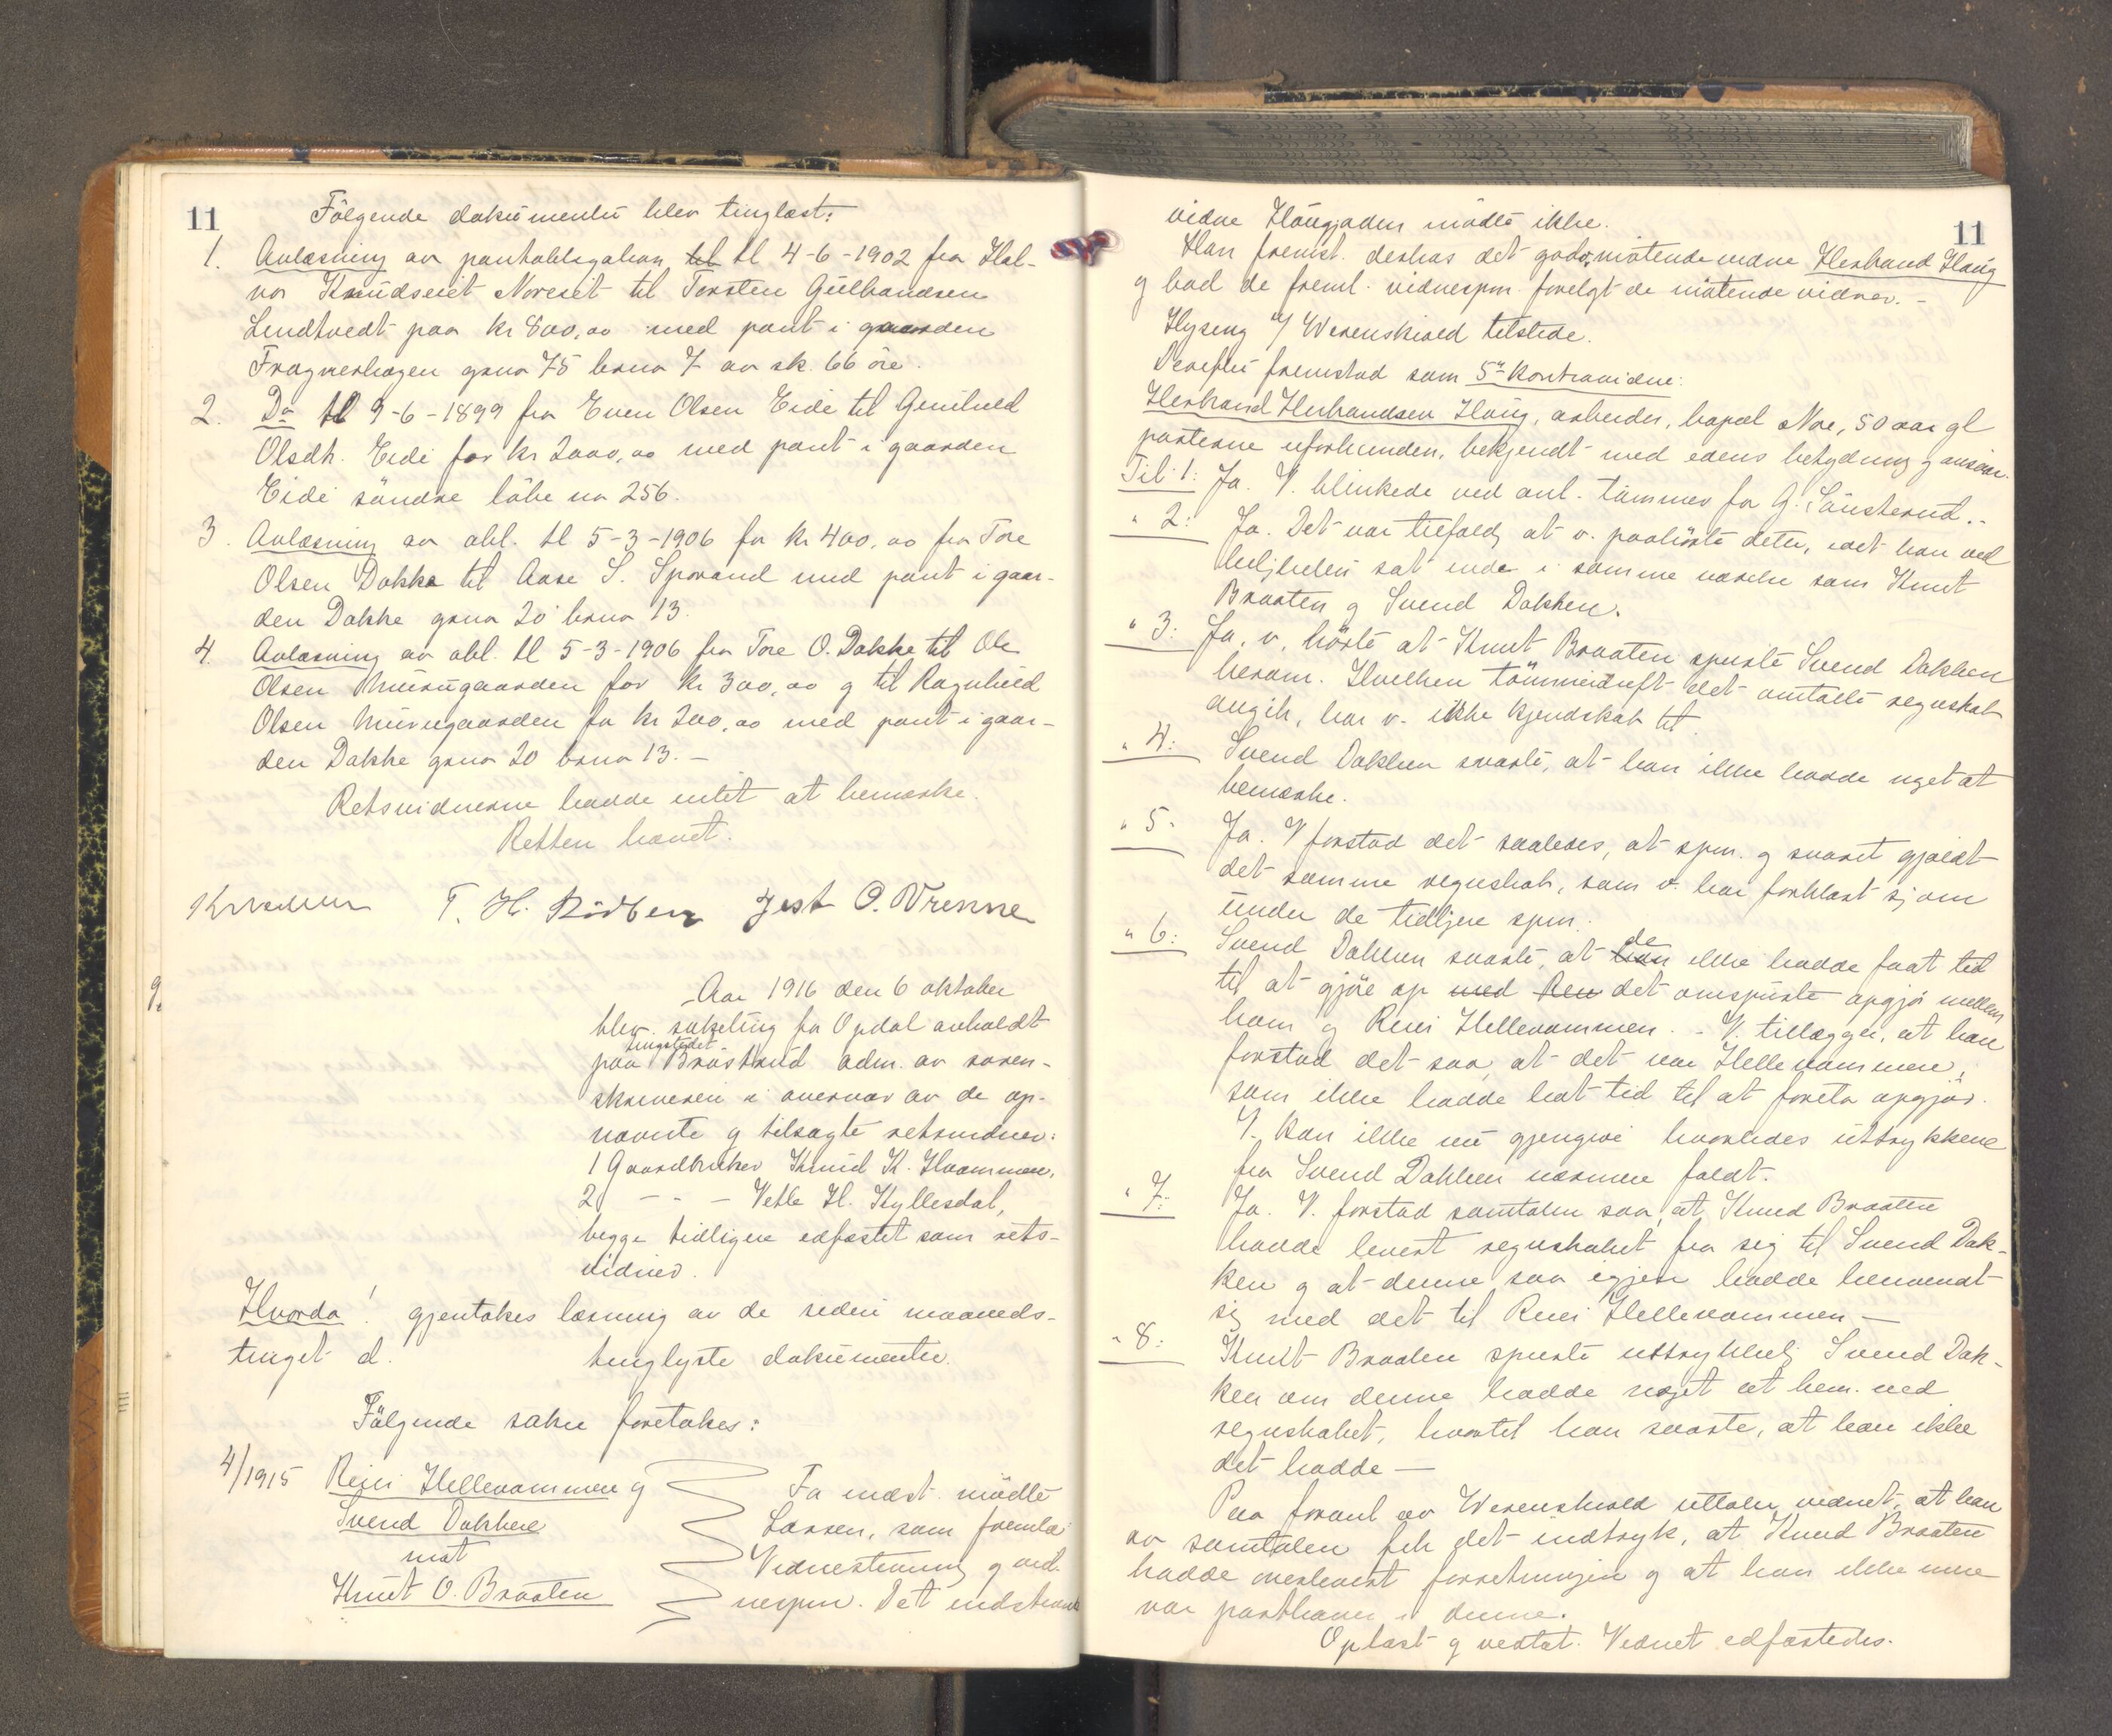 11
Følgende dokumenter blev tinglæst:
1. Avlæsning av pantobligation til dl 4-6-1902 fra Hal-
vor Knudseiet Noreeiet til Torsten Gulbrandsen
Lindtvedt paa kr 800,00 med pant i gaarden
Fragnerhagen gsno 75 brno 7 av sk. 66 øre.
2. Do dl 9-6-1899 fra Even Olsen Eide til Gunhild
Olsdtr. Eide for kr 2000,00 med pant i gaarden
Eide søndre løbe no 256.
3. Avlæsning av obl. dl 5-3-1906 for kr 400,00 fra Tore
Olsen Dokka til Aase S. Sporand med pant i gaar-
den Dokke gsno 20 brno 13.
4. Avlæsning av obl. dl 5-3-1906 fra Tore O. Dokke til Ole
Olsen Mürugaarden for kr 300,00 g til Ragnhild
Olsen Mürugaarden for kr 200,00 med pant i gaar-
den Dokke gsno 20 brno 13. -
Retsvidnerne hadde intet at bemerke.
Retten hævet.
T. H. Rødberg Jest O. Vrenne
9.
Aar 1916 den 6 oktober
blev sakeling for Opdal avholdt
tingstedet
paa Brøstrud adm. av soren-
skriveren i overvær av de op-
nævnte g tilsagte retsvidner:
1 Gaardbruker Knud K. Hvammen,
2 - - - Vetle H. Kyllesdal,
begge tidligere edfæstet som rets-
vidner.
Hvorda! gjentokes læsning av de siden maaneds-
tinget d. tinglyste dokumenter.
Følgende saker foretokes:
4/1915 Reier Hellevammen g
Svend Dokken
mot
Knut O. Braaten
Fa indst. mødte
Larsen, som fremla
Vidnestevning g vid-
nespm. Det indstevnte
11
vidne Haugjaden mødte ikke.
Han fremst. derhos det godv. møtende vidne Herbrand Haug
g bad de freml. vidnespm. forelgt de møtende vidner. -
Hyseng f/ Werenskiold tilstede.
Derefter fremstod som 5te kontravidne:
Herbrand Herbrandsen Haug, arbeider, bopæl Nore, 50 aar gl
parterne uforbunden, bekjendt med edens betydning g ansvar.
Til 1: Ja. V. blinkede ved anl. tømmer for G. Sønsterud. -
" 2: Ja. Det var tilfeldig at v. paahørte dette, idet han ved
leiligheten sat inde i samme værelse som Knut
Braaten g Svend Dokken.
" 3: Ja, v. hørte at Knut Braaten spurte Svend Dokken
herom. Hvilken tømmerdrift det omtalte regnskab
angik, har v. ikke kjendskab til.
" 4: Svend Dokken svarte, at han ikke hadde noget at
bemerke.
" 5: Ja. V forstod det saaledes, at spm. g svaret gjældt
det samme regnskab, som v. har forklart sj om
under de tidligere spm.
" 6: Svend Dokken svarte, at han de ikke hadde faat tid
til at gjøre op med den det omspurte opgjør mellem
ham g Reier Hellevammen. - V. tillægger, at han
forstod det saa, at det var Hellevammen,
som ikke hadde hat tid til at foreta opgjør.
V. kan ikke nu gjengive hvorledes uttrykkene
fra Svend Dokken nærmere faldt.
" 7: Ja. V. forstod samtalen saa, at Knud Braaten
hadde levert regnskabet fra sig til Svend Dok-
ken g at denne saa igjen hadde henvendt
sj med det til Reier Hellevammen —
" 8: Knut Braaten spurte uttrykkelig Svend Dok-
ken om denne hadde noget at bem. ved
regnskabet, hvortil han svarte, at han ikke
det hadde —
Paa foranl av Werenskiold uttaler vidnet, at han
av samtalen fik det indtryk, at Knud Braaten
hadde overlevert forretningen g at han ikke mere
var parthaver i denne.
Oplæst g vedtat. Vidnet edfæstedes.